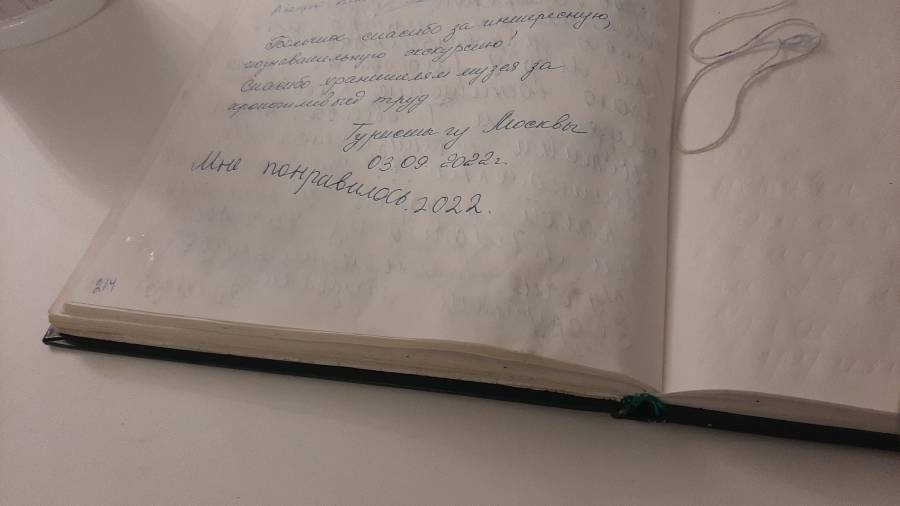 Большое спасибо за интересную,
познавательную экскурсию!
Спасибо хранителям музея за
кропотливый труд
Туристы из Москвы
03.09 2022г.
Мне понравилось. 2022.
214